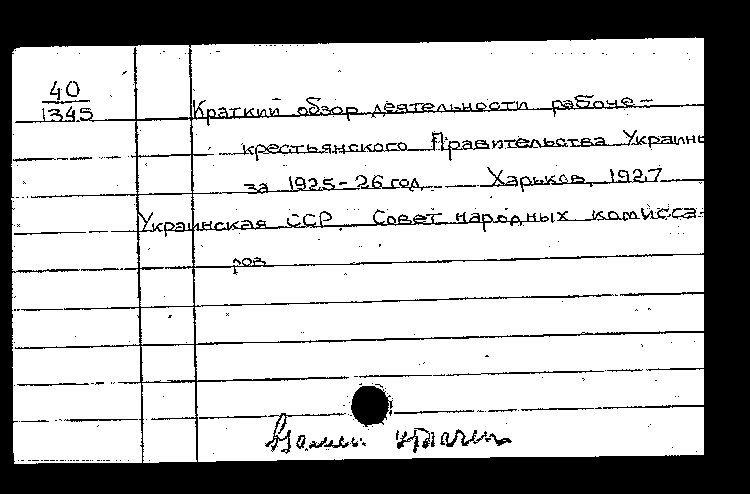 40
1345
Краткий обзор деятельности рабоче-
крестьянского Правительства Украины
за 1925-26 год Харьков, 1927
Украинская ССР. Совет народных комисса-
ров
Взамен утрачен